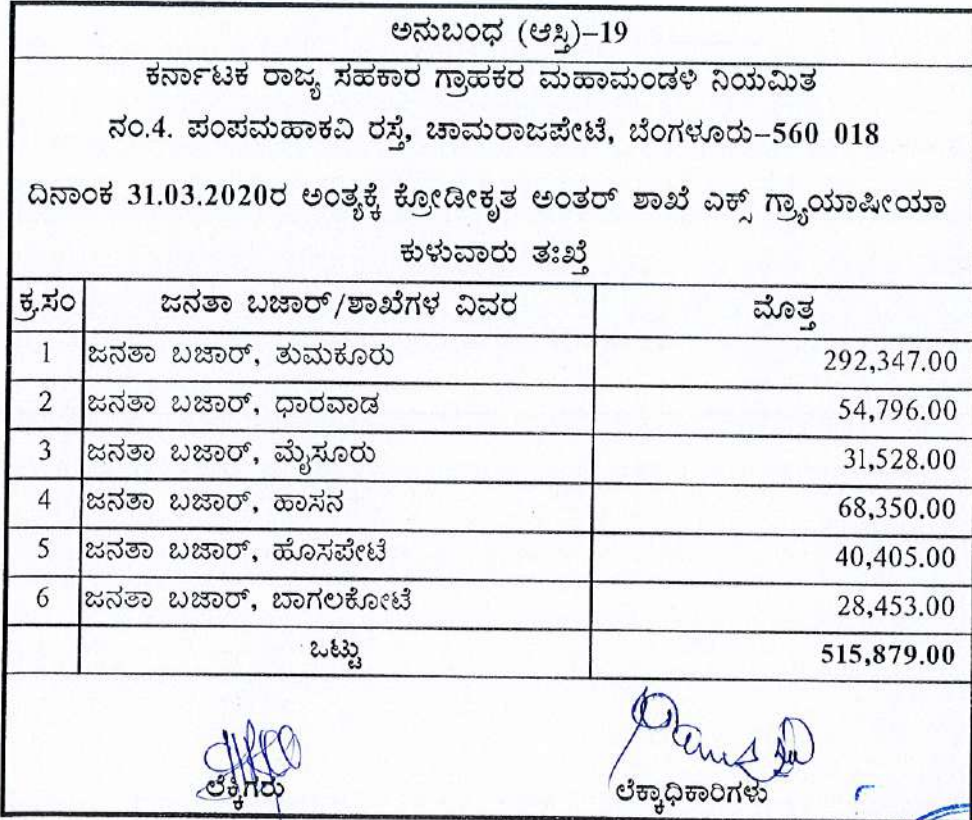 ಅನುಬಂಧ (ಆಸ್ತಿ)–19
ಕರ್ನಾಟಕ ರಾಜ್ಯ ಸಹಕಾರ ಗ್ರಾಹಕರ ಮಹಾಮಂಡಳಿ ನಿಯಮಿತ
ನಂ.4. ಪಂಪಮಹಾಕವಿ ರಸ್ತೆ, ಚಾಮರಾಜಪೇಟೆ, ಬೆಂಗಳೂರು–560 018
ದಿನಾಂಕ 31.03.2020ರ ಅಂತ್ಯಕ್ಕೆ ಕ್ರೋಡೀಕೃತ ಅಂತರ್ ಶಾಖೆ ಎಕ್ಸ್ ಗ್ರ್ಯಾಯಾಷೀಯಾ
ಕುಳುವಾರು ತಃಖ್ತೆ
ಕ್ರ.ಸಂ ಜನತಾ ಬಜಾರ್/ಶಾಖೆಗಳ ವಿವರ ಮೊತ್ತ
1 ಜನತಾ ಬಜಾರ್, ತುಮಕೂರು 292,347.00
2 ಜನತಾ ಬಜಾರ್, ಧಾರವಾಡ 54,796.00
3 ಜನತಾ ಬಜಾರ್, ಮೈಸೂರು 31,528.00
4 ಜನತಾ ಬಜಾರ್, ಹಾಸನ 68,350.00
5 ಜನತಾ ಬಜಾರ್, ಹೊಸಪೇಟೆ 40,405.00
6 ಜನತಾ ಬಜಾರ್, ಬಾಗಲಕೋಟೆ 28,453.00
ಒಟ್ಟು 515,879.00
ಲೆಕ್ಕಿಗರು ಲೆಕ್ಕಾಧಿಕಾರಿಗಳು